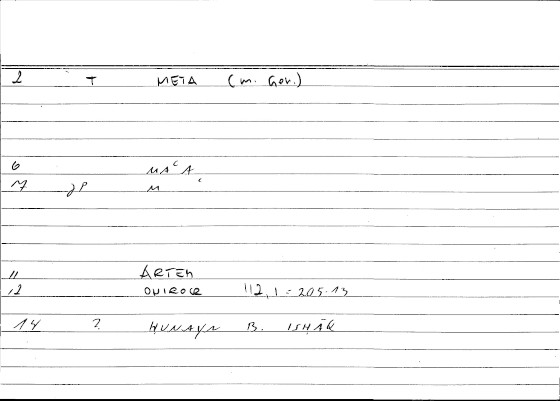 2 T META (m. Gov.)
6 MAʿA
7 JP M ʿ
11 ARTEM
12 ONIROCR 112,1 = 205.13
14 2 HUNAYN B. ISHĀK